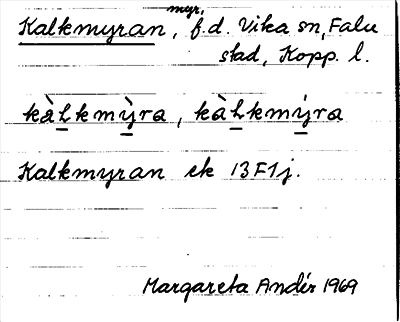 Kalkmyran, myr, f.d. Vika sn, Falu
stad, Kopp. l.
kàlkmỳra, kàlkmýra
Kalkmyran ek 13F1j.
Margareta Andér 1969